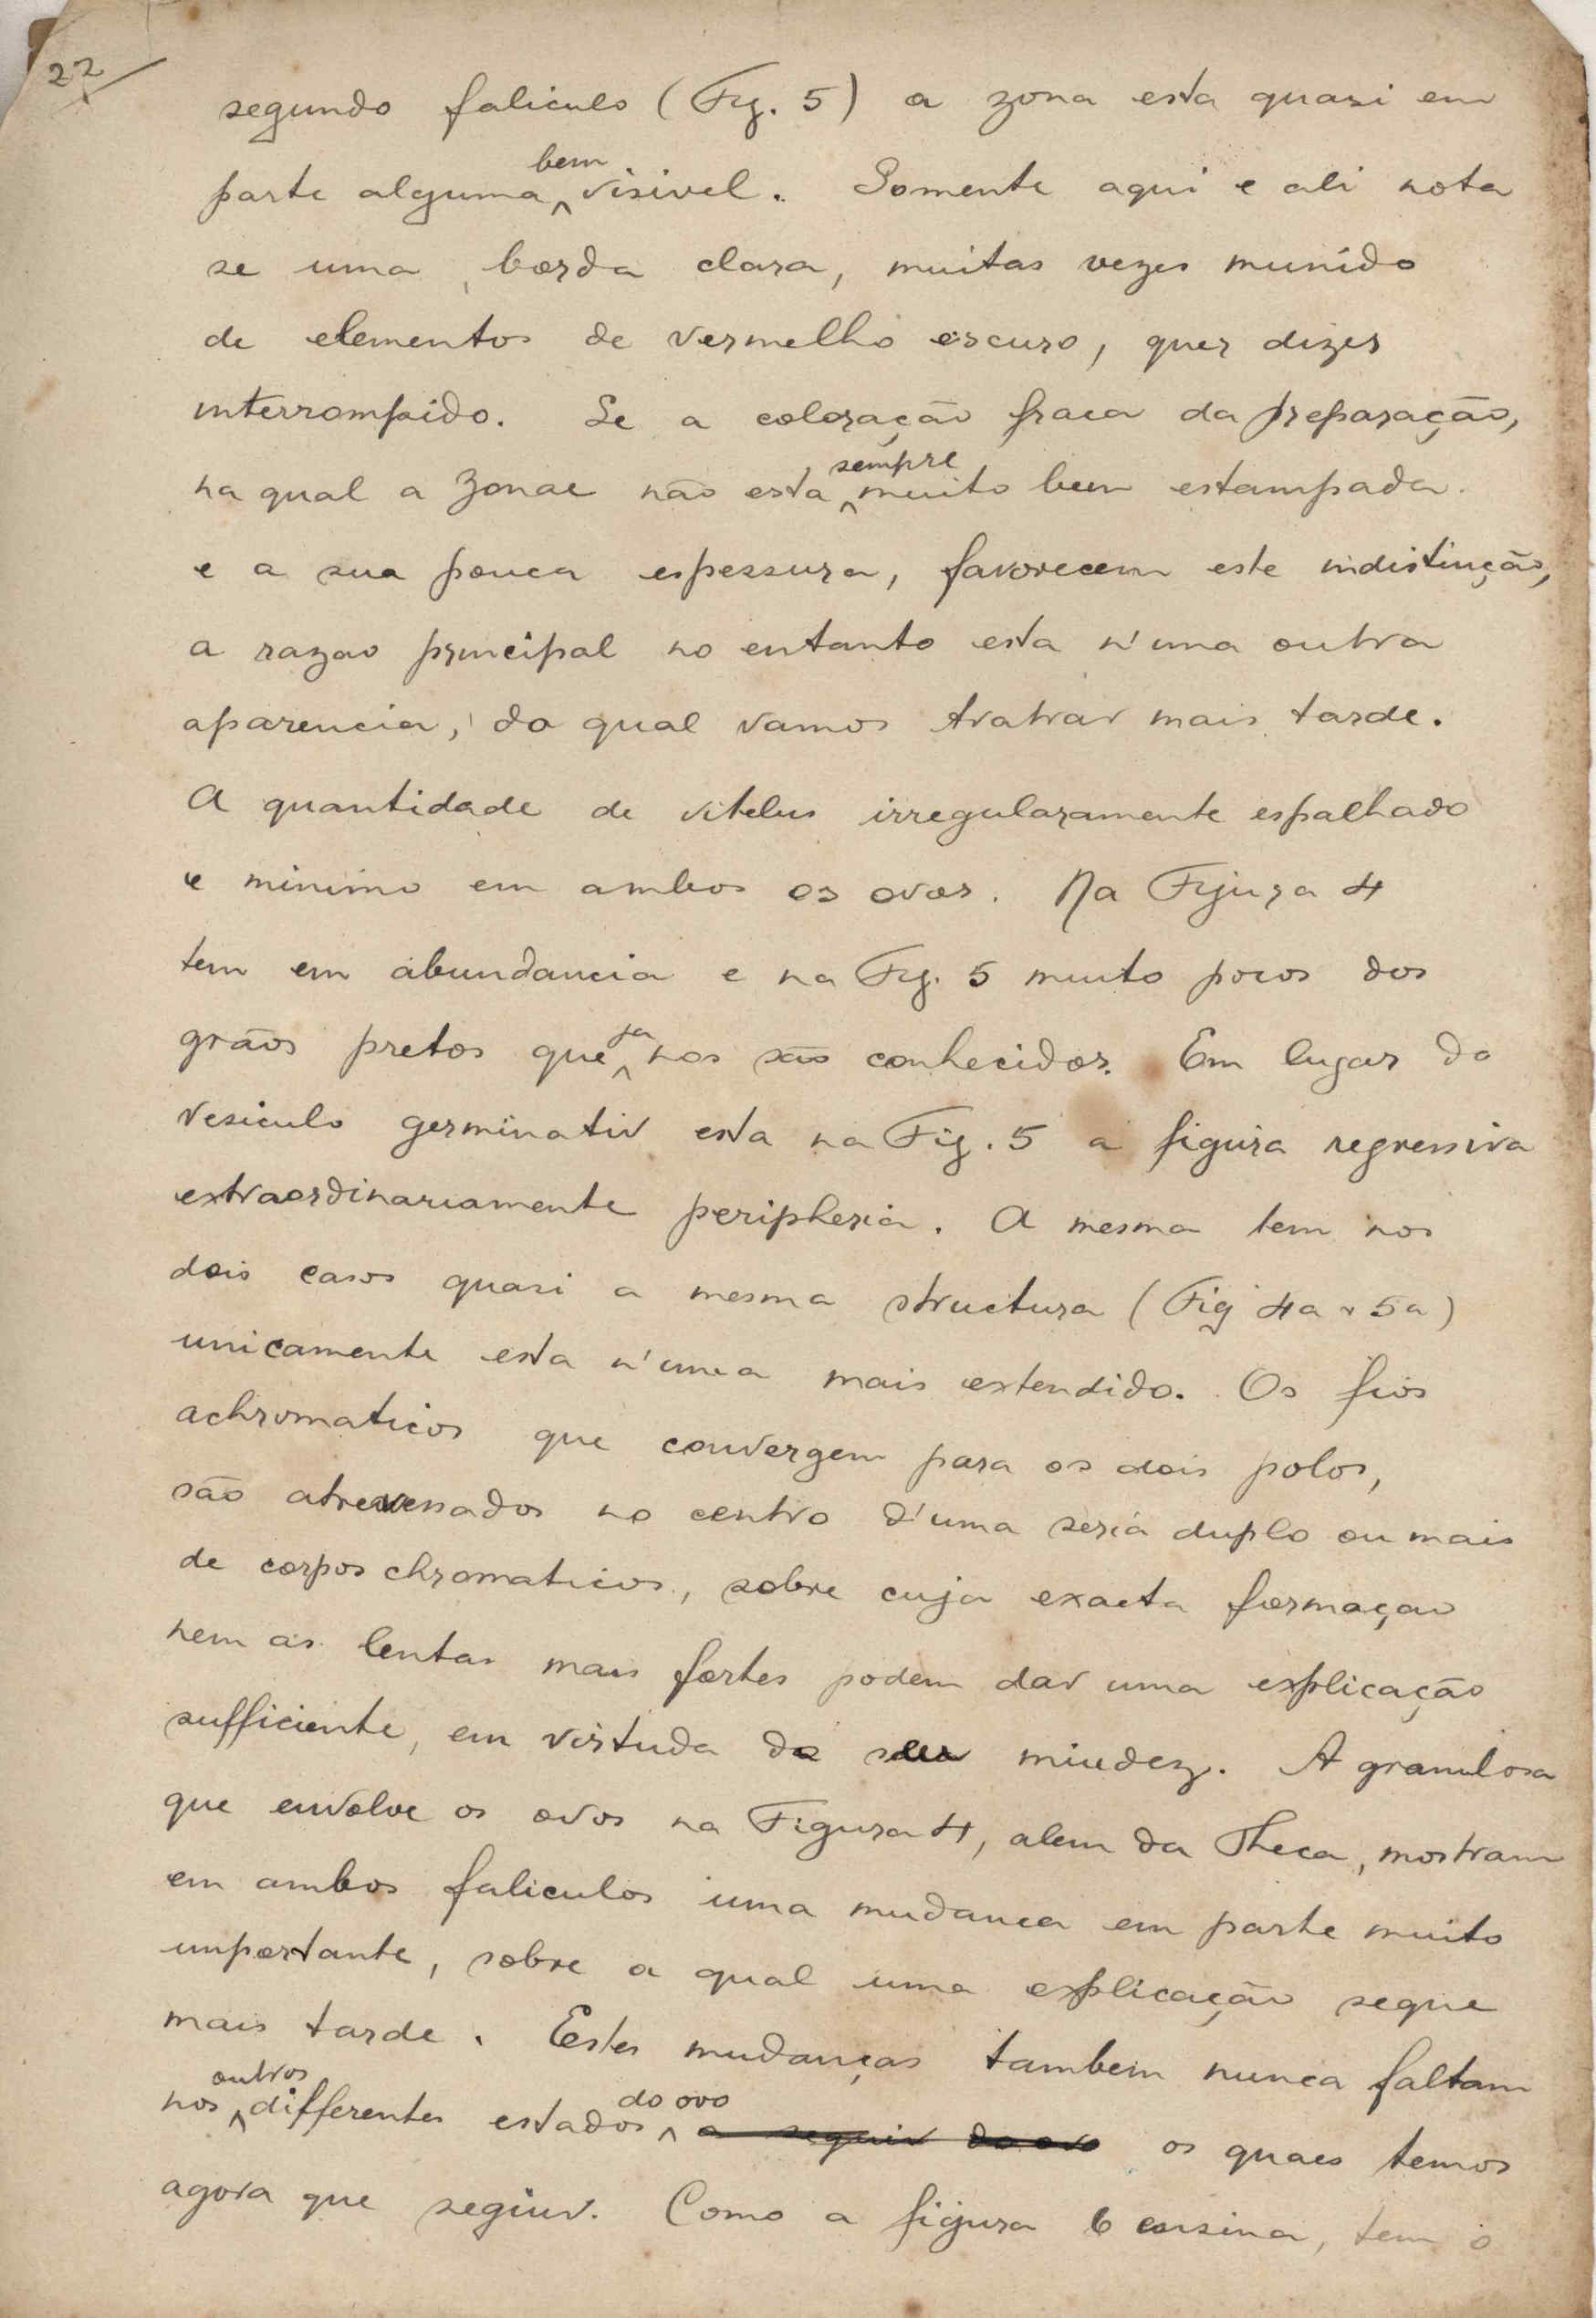 22
segundo faliculo (Fig. 5) a zona esta quasi em
parte alguma ^bem visivel. Somente aqui e ali nota
se uma borda clara, muitas vezes munido
de elementos de vermelho escuro, quer dizer
interrompido. Se a coloração fraca da preparação,
na qual a Zonae não esta ^sempre muito bem estampada
e a sua pouca espessura, favorecem este indistinção,
a razao principal no entanto esta n'uma outra
aparencia, do qual vamos tratrar mais tarde.
A quantidade de vitelus irregularamente espalhado
e minimo em ambos os ovos. Na Figura 4
tem em abundancia e na Fig. 5 muito pocos dos
grãos pretos que ^ja nos são conhecidos. Em lugar do
vesiculo germinativ esta na Fig. 5 a figura regressiva
extraordinariamente peripheria. A mesma tem nos
dois casos quasi a mesma structura (Fig 4a + 5a)
unicamente esta n'uma mais extendido. Os fios
achromaticos que convergem para os dois polos,
são atravessados no centro d'uma seria duplo ou mais
de corpos chromaticos, sobre cuja exacta formaçao
nem as lentas mais fortes podem dar uma explicação
sufficiente, em virtuda da sua miudez. A granulosa
que envolve os ovos na Figura 4, alem da Theca, mostram
em ambos faliculos uma mudanca em parte muito
importante, sobre a qual uma explicação segue
mais tarde. Estes mudanças tambem nunca faltam
nos ^outros differentes estados ^do ovo a seguir do ovo os quaes temos
agora que seguir. Como a figura 6 ensina, tem o